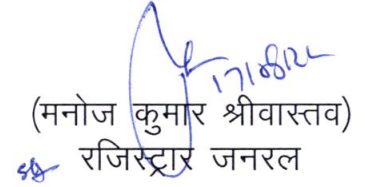 17/08/22
(मनोज कुमार श्रीवास्तव)
रजिस्ट्रार जनरल